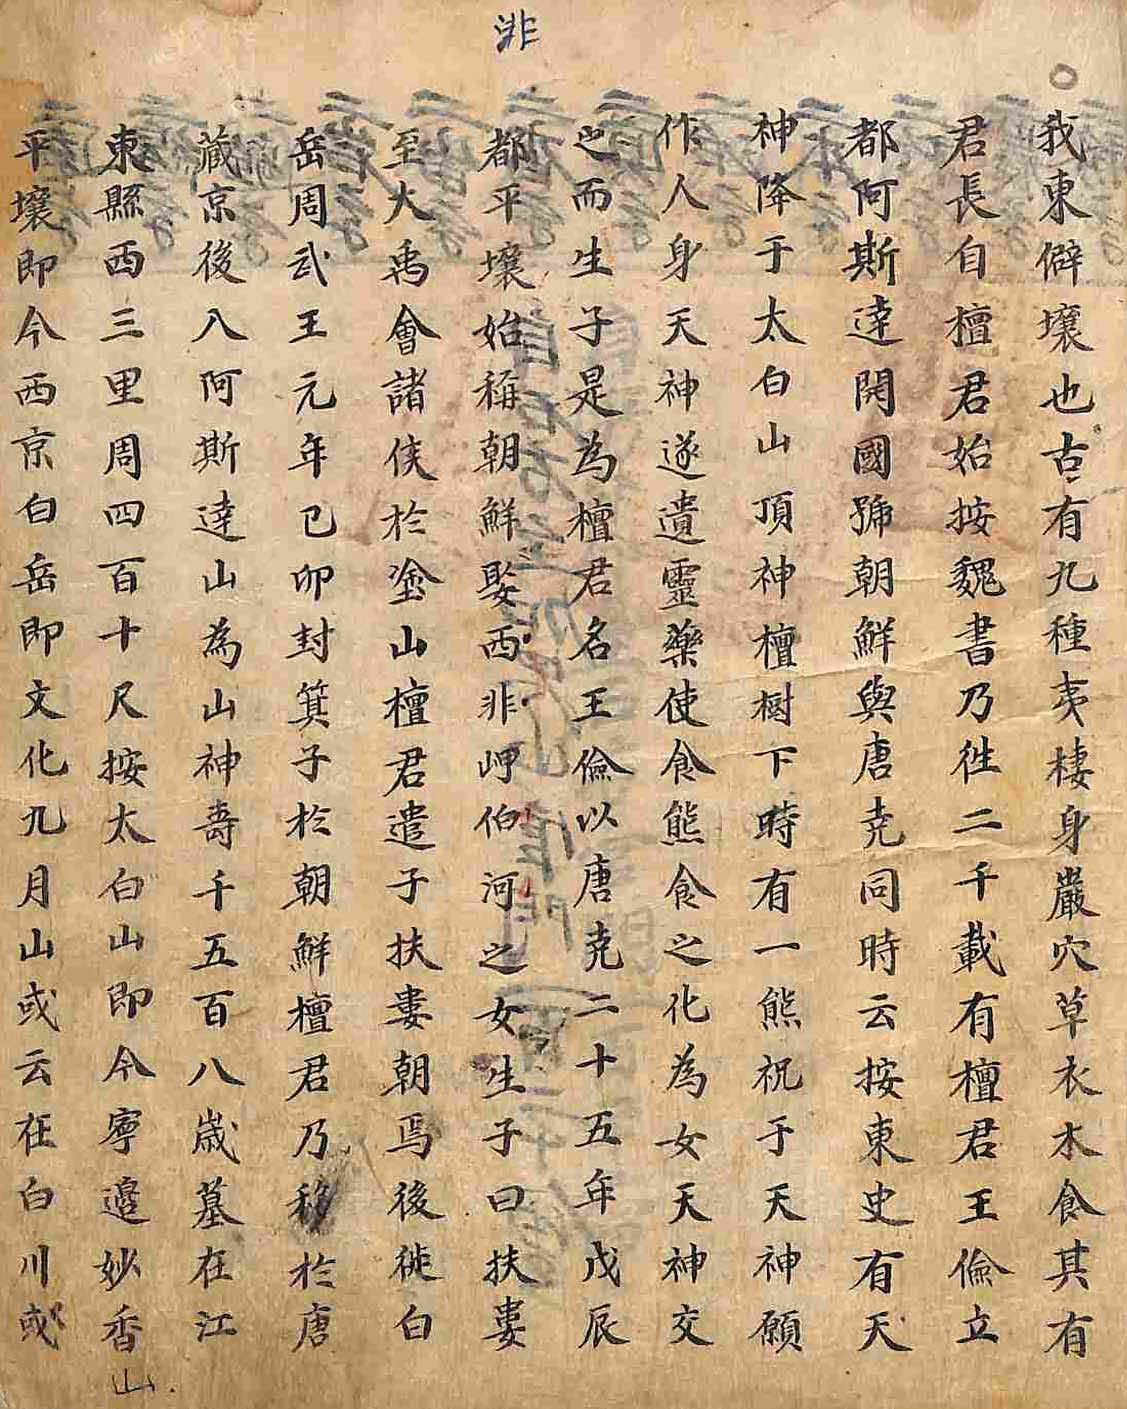 淠
○我東僻壤也古有九種夷棲身巖穴草衣木食其有
君長自檀君始按魏書乃徃二千載有檀君王儉立
都阿斯達開國號朝鮮與唐尭同時云按東史有天
神降于太白山頂神檀樹下時有一熊祝于天神願
作人身天神遂遺靈藥使食熊食之化為女天神交
之而生子是為檀君名王儉以唐尭二十五年戊辰
都平壤始稱朝鮮娶西非岬伯河之女生子曰扶婁
至大禹會諸侯於塗山檀君遣子扶婁朝焉後徙白
岳周武王元年己卯封箕子於朝鮮檀君乃移於唐
藏京後入阿斯達山為山神壽千五百八歲墓在江
東縣西三里周四百十尺按太白山即今寧邊妙香山
平壤即今西京白岳即文化九月山或云在白川或